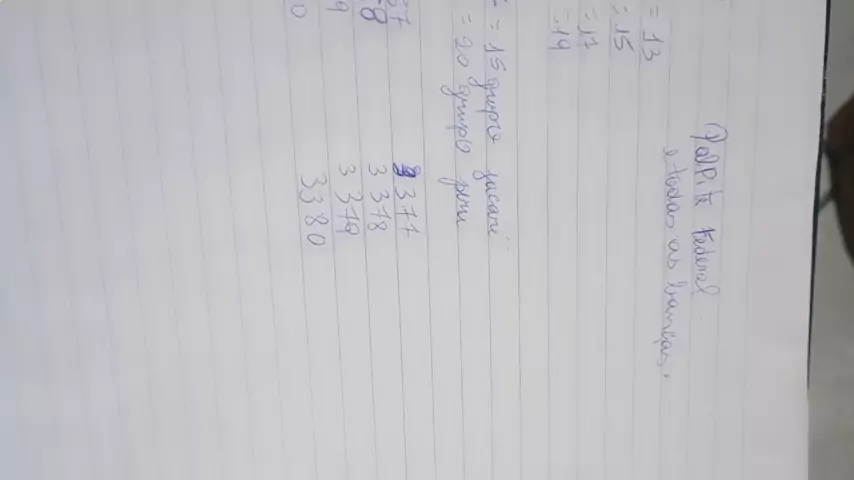 Palpite Federal
e todas as bancas.
= 13
= 15
= 17
= 19
= 15 grupo jacaré
= 20 grupo peru
3377
3378
3379
3380